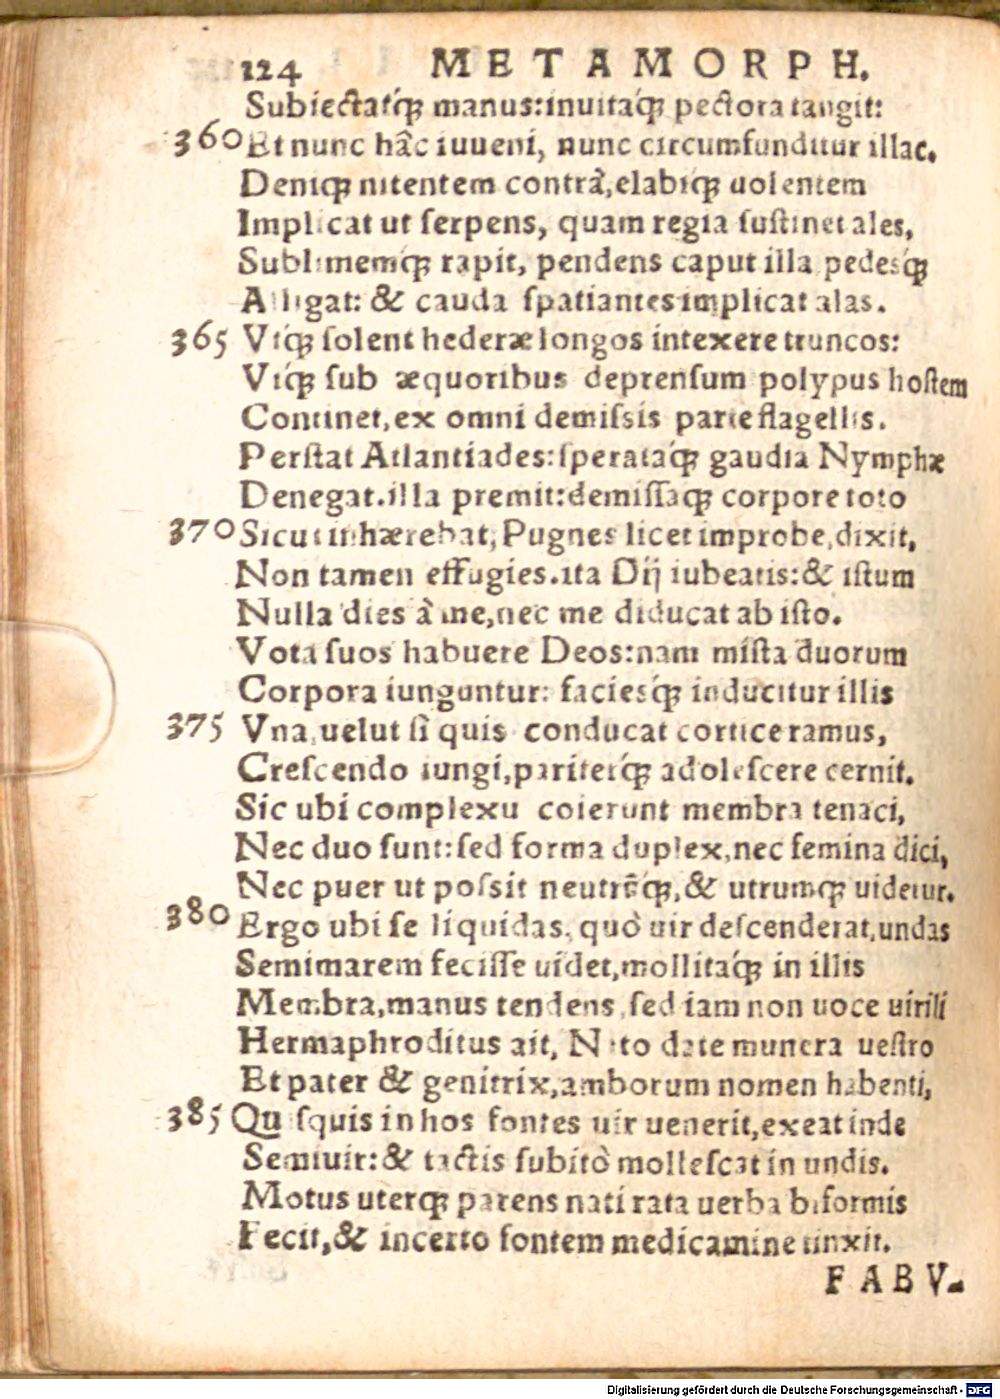 124 METAMORPH.
Subiectatq́ꝫ manus:inuitaq́ꝫ pectora tangit:
360 Et nunc hâc iuueni, nunc circumfunditur illac.
Deniqꝫ nitentem contrà,elabiqꝫ uolentem
Implicat ut ſerpens, quam regia ſuſtinet ales,
Sublimemq́ꝫ rapit, pendens caput illa pedesq́ꝫ
Alligat: & cauda ſpatiantes implicat alas.
365 Vtq́ꝫ ſolent hederæ longos intexere truncos:
Vtq́ꝫ ſub æquoribus deprenſum polypus hoſtem
Continet,ex omni demiſsis parte flagellis.
Perſtat Atlantiades:ſperataq́ꝫ gaudia Nymphæ
Denegat.illa premit:demiſſaqꝫ corpore toto
370 Sicut inhærebat, Pugnes licet improbe,dixit,
Non tamen effugies.ita Dij iubeatis:& iſtum
Nulla dies à me,nec me diducat ab iſto.
Vota ſuos habuere Deos:nam miſta duorum
Corpora iunguntur: faciesq́ꝫ inducitur illis
375 Vna,uelut ſi quis conducat cortice ramus,
Creſcendo iungi,pariterq́ꝫ adoleſcere cernit.
Sic ubi complexu coierunt membra tenaci,
Nec duo ſunt:ſed forma duplex,nec femina dici,
Nec puer ut poſsit neutrūq́ꝫ,& utrumqꝫ uidetur.
380 Ergo ubi ſe liquidas, quò uir deſcenderat,undas
Semimarem feciſſe uidet,mollitaq́ꝫ in illis
Membra,manus tendens,ſed iam non uoce uirili
Hermaphroditus ait, Nato date munera ueſtro
Et pater & genitrix,amborum nomen habenti,
385 Quiſquis in hos fontes uir uenerit,exeat inde
Semiuir:& tactis ſubitò molleſcat in undis.
Motus uterqꝫ parens nati rata uerba biformis
Fecit,& incerto fontem medicamine tinxit.
FABV-
Digitalisierung gefördert durch die Deutsche Forschungsgemeinschaft - DFG